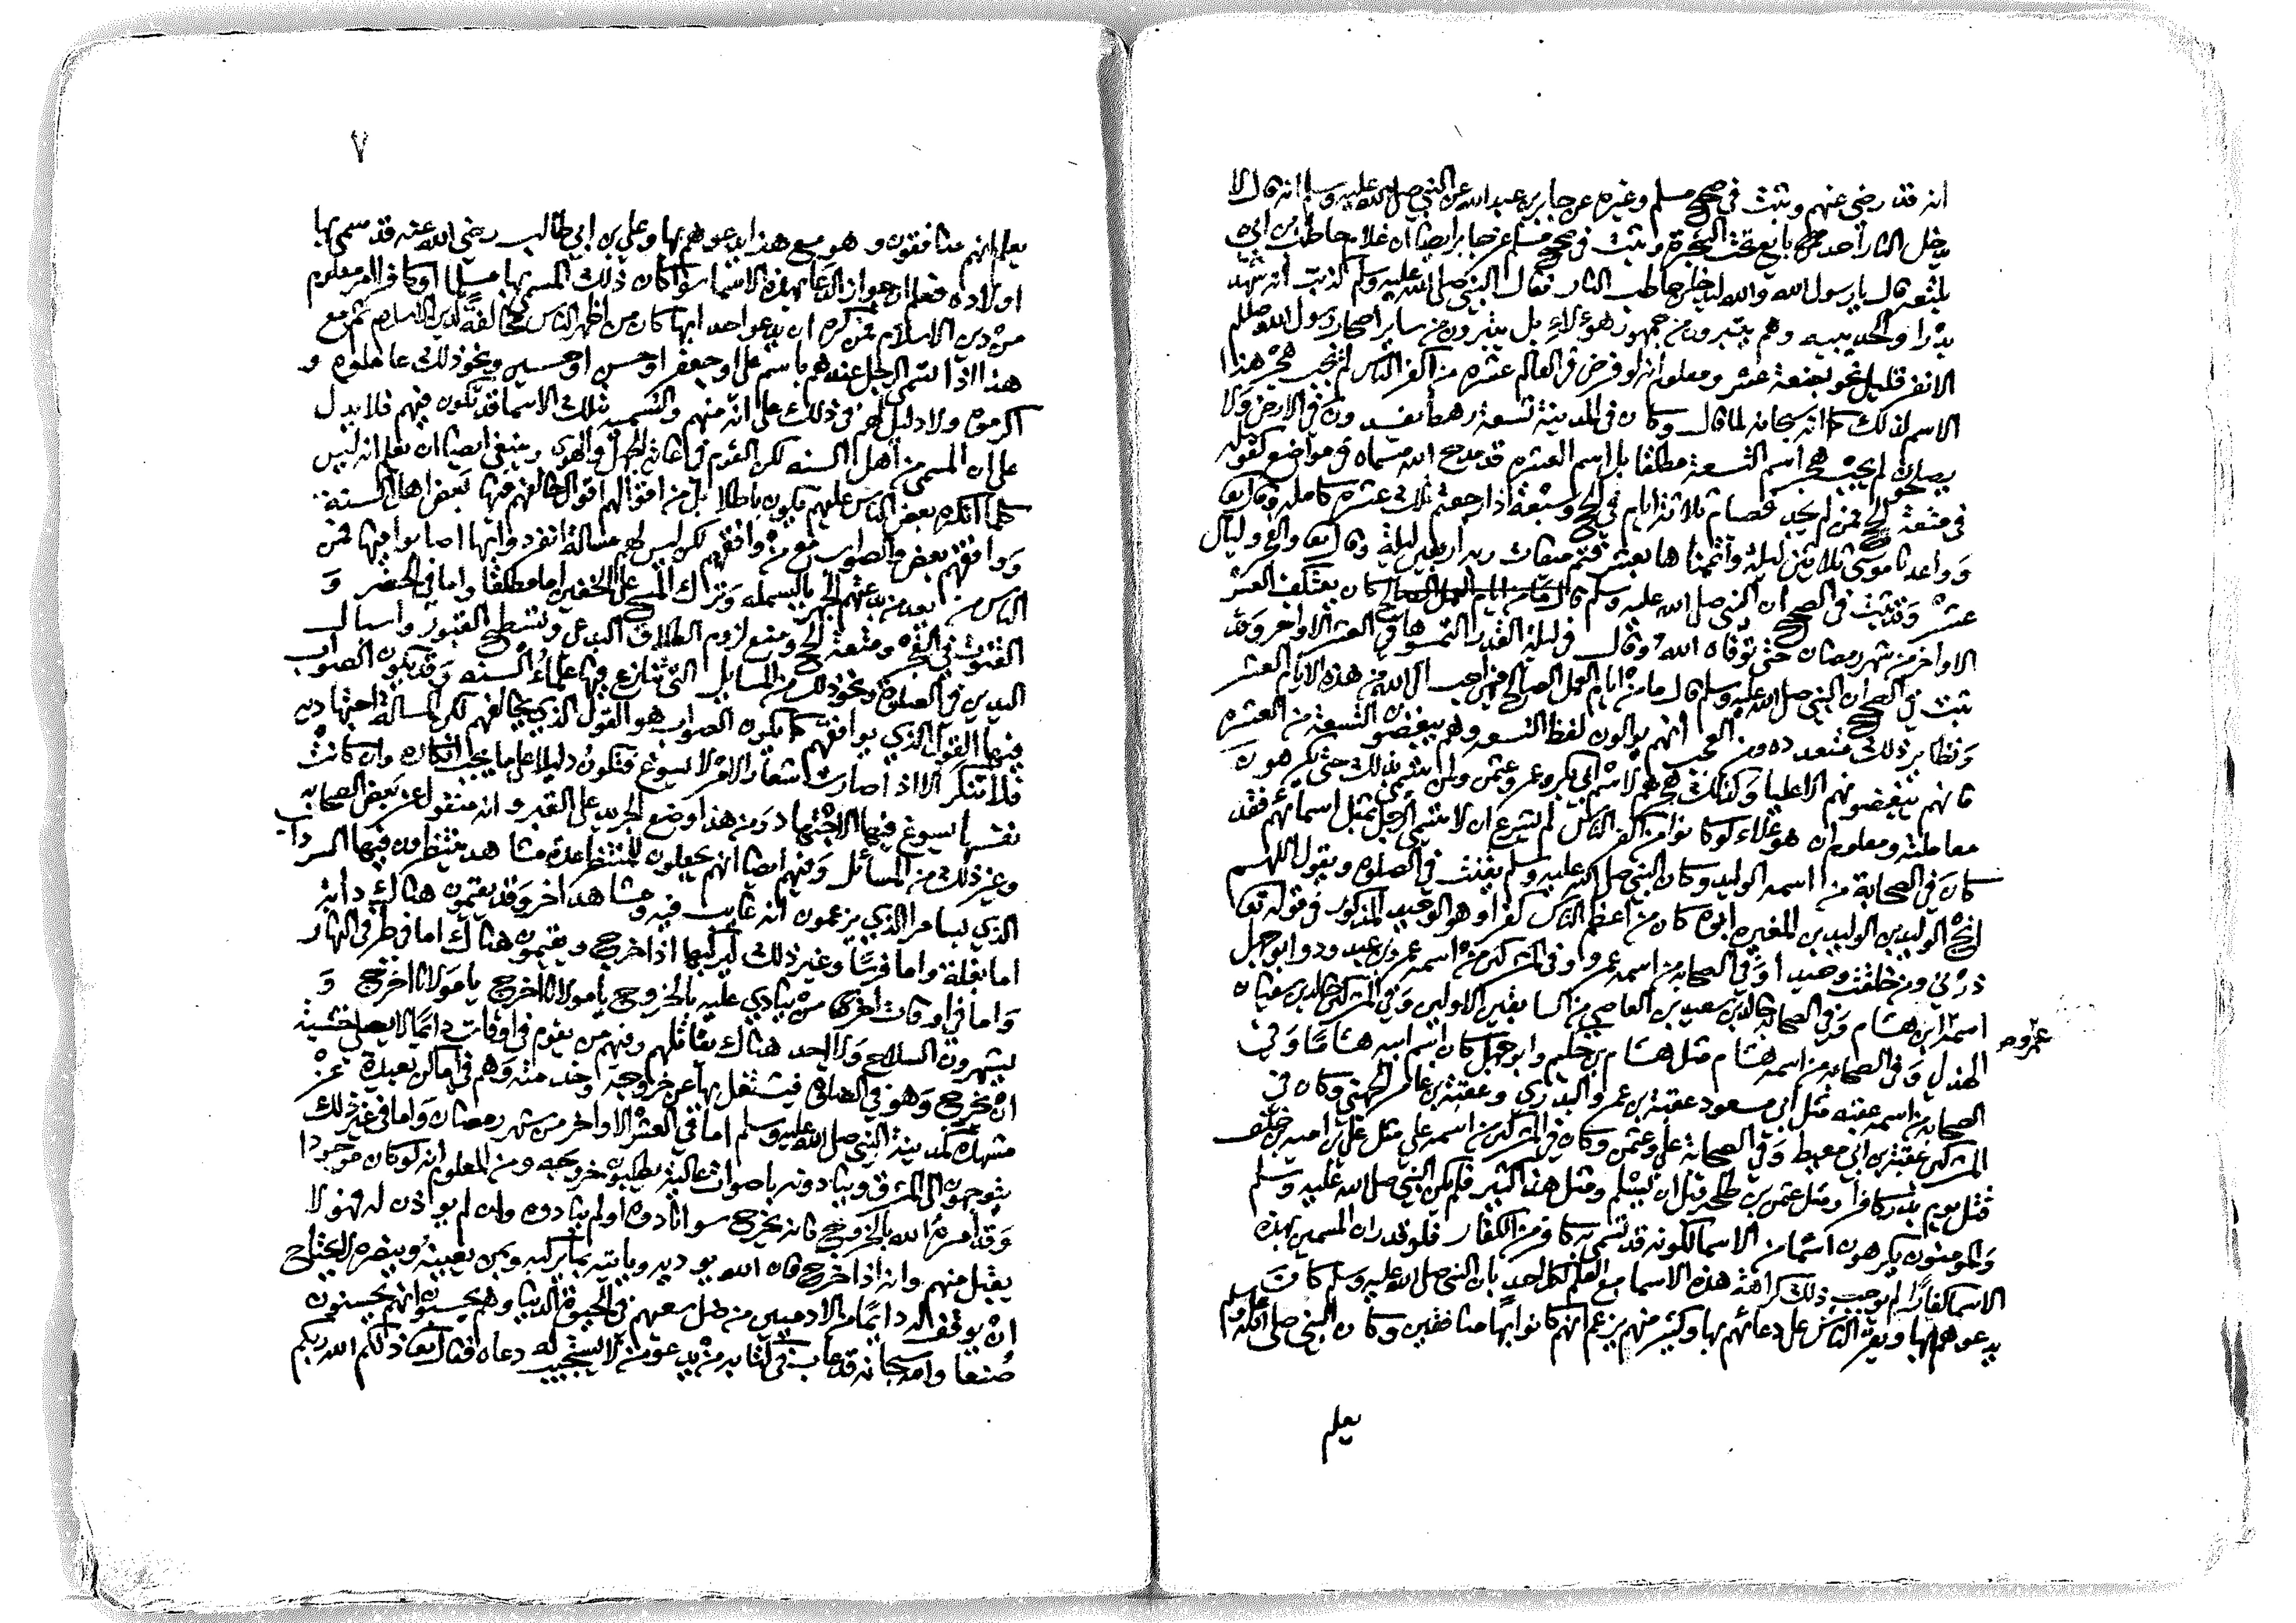 انه قد رضي عنهم وثبت في صحيح مسلم وغيره عن جابر بن عبد الله عن النبي صلى الله عليه وسلم انه قال لا
يدخل النار احد ممن بايع تحت الشجرة وثبت في صحيح مسلم عن جابر ايضا ان غلام حاطب بن ابي
بلتعه قال يا رسول الله والله ليدخلن حاطب النار فقال النبي صلى الله عليه وسلم كذبت انه شهد
بدرا والحديبيه وهم يتبرون من جمهور هؤلاء بل يتبرون من ساير اصحاب رسول الله صلعم
الا نفر قليل نحو بضعة عشر ومعلوم انه لو فرض في العالم عشره من اكفر الناس لم يجب هجر هذا
الاسم لذلك كما انه سبحانه لما قال وكان في المدينة تسعة رهط يفسدون في الارض ولا
يصلحون لم يجب هجر اسم التسعة مطلقا بل اسم العشره قد مدح الله مسماه في مواضع كقوله
في متعة الحج فمن لم يجد فصيام ثلاثة ايام في الحج وسبعة اذا رجعتم تلك عشرة كامله وقال تعا
وواعدنا موسى ثلاثين ليلة واتممناها بعشر فتم ميقات ربه اربعين ليلة وقال تعا والفجر وليال
عشر وقد ثبت في الصحيح ان النبي صلى الله عليه وسلم كان يعتكف العشر
الاواخر من شهر رمضان حتى توفاه الله وقال في ليلة القدر التمسوها في العشر الاواخر وقد
ثبت في الصحيح ان النبي صلى الله عليه وسلم قال ما من ايام العمل الصالح فيهن احب الى الله من هذه الايام العشر
ونظاير ذلك متعدده ومن العجب انهم يوالون لفظ التسعه وهم يبغضون التسعة من العشره
فانهم يبغضونهم الا عليا وكذلك هجرهم لاسم ابي بكر وعمر وعثمن ولمن يتسمى بذلك حتى يكرهون
معاملته ومعلوم ان هؤلاء لو كانوا من اكفر الناس لم يشرع ان لا يتسمى الرجل بمثل اسمائهم فقد
كان في الصحابة من اسمه الوليد وكان النبي صلى الله عليه وسلم يقنت في الصلوه ويقول اللهم
انج الوليد بن الوليد بن المغيره ابوه كان من اعظم الناس كفرا وهو الوحيد المذكور في قوله تعا
ذرني ومن خلقت وحيدا وفي الصحابه من اسمه عمرو وفي المشركين من اسمه عمرو بن عبد ود وابو جهل
اسمه عمرو بن هشام وفي الصحابه خالد بن سعيد بن العاصي من السابقين الاولين وفي المشركين خالد بن سفيان
الهذلي وفي الصحابه من اسمه هشام مثل هشام بن حكيم وابو جهل كان اسم ابيه هشاما وفي
الصحابه من اسمه عقبه مثل ابي مسعود عقبة بن عمرو البدري وعقبة بن عامر الجهني وكان في
المشركين عقبة بن ابي معيط وفي الصحابة علي وعثمن وكان في المشركين من اسمه علي مثل علي بن اميه بن خلف
قتل يوم بدر كافرا ومثل عثمن بن طلحه قتل ان يسلم ومثل هذا كثير فلم يكن النبي صلى الله عليه وسلم
والمومنون يكرهون اسما من الاسما لكونه قد تسمى به كافر من الكفار فلو قدر ان المسمين بهذه
الاسما كفار لم يوجب ذلك كراهة هذه الاسما مع العلم لكل احد بان النبي صلى الله عليه وسلم كان
يدعوهم بها ويقر الناس على دعائهم بها وكثير منهم يزعم انهم كانوا ايها منافقين وكان النبي صلى الله عليه وسلم
يعلم
٧
يعلم انهم منافقون وهو مع هذا يدعوهم بها وعلي بن ابي طالب رضي الله عنه قد سمى بها
اولاده فعلم ان جواز الدعا بهذه الاسما سوا كان ذلك المسمى بها مسلما او كافرا امر معلوم
من دين الاسلام فمن كره ان يدعو احدا بها كان من اظهر الناس مخالفة لدين الاسلام ثم مع
هذا اذا تسمى الرجل عندهم باسم علي او جعفر او حسن او حسين ونحو ذلك عاملوه و
اكرموه ولا دليل لهم في ذلك على انه منهم والتسميه بتلك الاسما قد تكون فيهم فلا يدل
على ان المسمى من اهل السنه لكن القوم في غاية الجهل والهوى وينبغي ايضا ان يعلم انه ليس
كلما انكره بعض الناس عليهم يكون باطلا بل من اقوالهم اقوال خالفهم فيها بعض اهل السنة
ووافقهم بعض والصواب مع من وافقهم لكن ليس لهم مسالة انفردوا بها اصابوا فيها فمن
الناس من يعد من بدعتهم الجهر بالبسمله وترك المسح على الخفين اما مطلقا واما في الحضر و
القنوت في الفجر ومتعة الحج ومنع لزوم الطلاق البدعي وتسطيح القبور واسبال
اليدين في الصلوه ونحو ذلك من المسايل التي تنازع فيها علماء السنه وقد يكون الصواب
فيها القول الذي يوافقهم كما يكون الصواب هو القول الذي يخالفهم لكن المسالة اجتهاديه
فلا تنكر الا اذا صارت شعارا لامر لا يسوغ فتكون دليلا على ما يجب انكاره وان كانت
نفسها يسوغ فيها الاجتهاد ومن هذا وضع الجريد على القبر وانه منقول عن بعض الصحابه
وغير ذلك من المسائل ومنهم ايضا انهم يجعلون للمنتظر عدة مشاهد ينتظرونه فيها السرداب
الذي بسامرا الذي يزعمون انه غايب فيه ومشاهد اخر وقد يقيمون هناك دابه
اما بغلة واما فرسا وغير ذلك ليركبها اذا خرج ويقيمون هناك اما في طرفي النهار
واما في اوقات اخر من ينادي عليه بالخروج يا مولانا اخرج يا مولانا اخرج و
يشهرون السلاح ولا احد هناك يقاتلهم وفيهم من يقوم في اوقات دائما لا يصلي خشية
ان يخرج وهو في الصلاة فيشتغل بها عن خروجه وخدمته وهم في اماكن بعيدة عن
مشهده كمدينة النبي صلى الله عليه وسلم اما في العشر الاواخر من شهر رمضان واما في غير ذلك
يتوجهون الى المشرق وينادونه باصوات عالية يطلبون خروجه ومن المعلوم انه لو كان موجودا
وقد امره الله بالخروج فانه يخرج سوا نادوه او لم ينادوه وان لم يوذن له فهو لا
يقبل منهم وانه اذا خرج فان الله يويده وياتيه بما يركبه وبمن يعينه وينصره لا يحتاج
ان يوقف له دائما من الادميين من ضل سعيهم في الحيوة الدنيا وهم يحسبون انهم يحسنون
صنعا والله سبحانه قد عاب في كتابه من يدعو من لا يستجيب له دعاه فقال تعا ذلكم الله ربكم